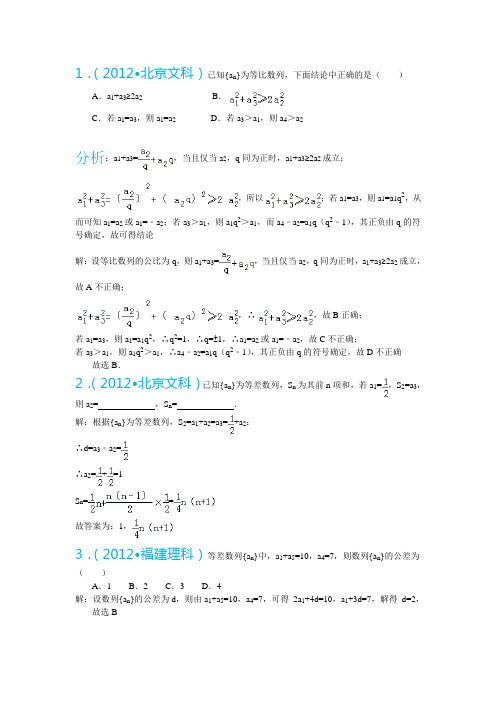 1.(2012•北京文科)已知{aₙ}为等比数列，下面结论中正确的是（　　）
A．a₁+a₃≥2a₂　　B．a₁²+a₃²≥2a₂²
C．若a₁=a₃，则a₁=a₂　　D．若a₃＞a₁，则a₄＞a₂
分析：a₁+a₃=a₂/q+a₂q，当且仅当a₂，q同为正时，a₁+a₃≥2a₂成立；
a₁²+a₃²=(a₂/q)²+(a₂q)²≥2a₂²，所以a₁²+a₃²≥2a₂²；若a₁=a₃，则a₁=a₁q²，从
而可知a₁=a₂或a₁=﹣a₂；若a₃＞a₁，则a₁q²＞a₁，而a₄﹣a₂=a₁q（q²﹣1），其正负由q的符
号确定，故可得结论
解：设等比数列的公比为q，则a₁+a₃=a₂/q+a₂q，当且仅当a₂，q同为正时，a₁+a₃≥2a₂成立，
故A不正确；
a₁²+a₃²=(a₂/q)²+(a₂q)²≥2a₂²，∴a₁²+a₃²≥2a₂²，故B正确；
若a₁=a₃，则a₁=a₁q²，∴q²=1，∴q=±1，∴a₁=a₂或a₁=﹣a₂，故C不正确；
若a₃＞a₁，则a₁q²＞a₁，∴a₄﹣a₂=a₁q（q²﹣1），其正负由q的符号确定，故D不正确
故选B．
2.(2012•北京文科)已知{aₙ}为等差数列，Sₙ为其前n项和，若a₁=1/2，S₂=a₃，
则a₂=　　，Sₙ=　　．
解：根据{aₙ}为等差数列，S₂=a₁+a₂=a₃=1/2+a₂；
∴d=a₃﹣a₂=1/2
∴a₂=1/2+1/2=1
Sₙ=1/2n+n(n﹣1)/2×1/2=1/4n（n+1）
故答案为：1，1/4n（n+1）
3.(2012•福建理科)等差数列{aₙ}中，a₁+a₅=10，a₄=7，则数列{aₙ}的公差为
（　　）
A．1　B．2　C．3　D．4
解：设数列{aₙ}的公差为d，则由a₁+a₅=10，a₄=7，可得2a₁+4d=10，a₁+3d=7，解得 d=2，
故选B